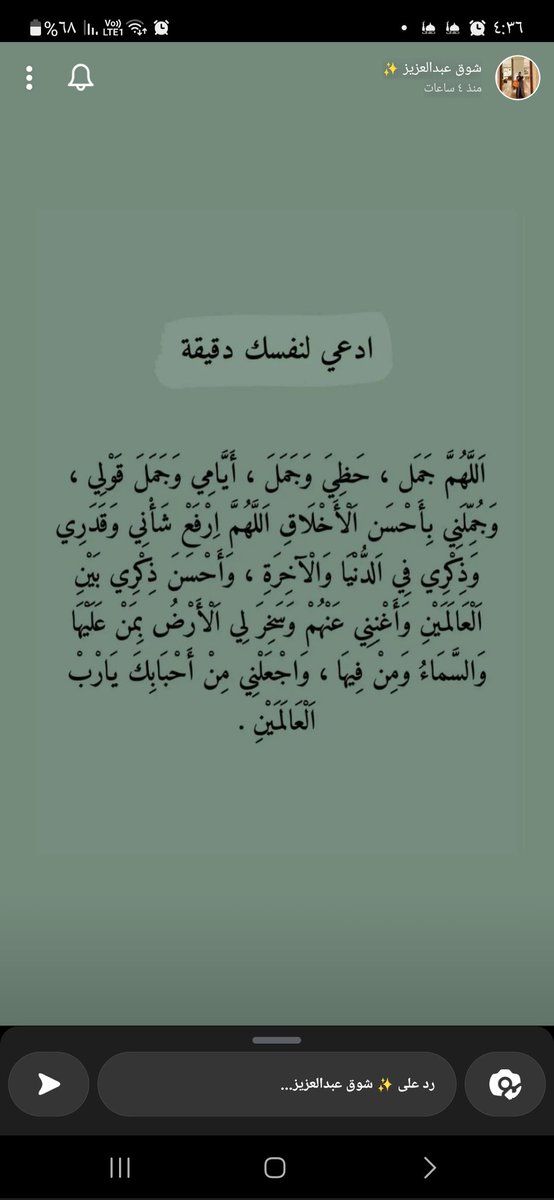 ٤:٣٦
٪٦٨
Vo))
LTE1
شوق عبدالعزيز ✨
منذ ٤ ساعات
ادعي لنفسك دقيقة
اَللَّهُمَّ جَمَل ، حَظِيَ وَجَمَلَ ، أَيَّامِي وَجَمَلَ قَوْلِي ،
وَجُمِّلَنِي بِأَحْسَن اَلْأَخْلَاقِ اَللَّهُمَّ اِرْفَعْ شَأْنِي وَقَدَرِي
وَذِكْرِي فِي اَلدُّنْيَا وَالْآخِرَةِ ، وَأَحْسَنَ ذِكْرِي بَيْنِ
اَلْعَالَمَيْنِ وَأَغْنِنِي عَنْهُمْ وَسَخِرَ لِي اَلْأَرْضُ بِمَنْ عَلَيْهَا
وَالسَّمَاءُ وَمِنْ فِيهَا ، وَاجْعَلْنِي مِنْ أَحْبَابِكَ يَارْبْ
اَلْعَالَمَيْنِ .
رد على ✨ شوق عبدالعزيز...